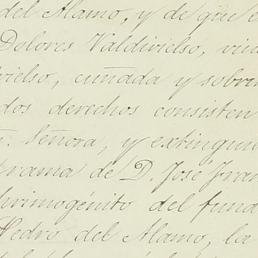 del Alamo, y de que e
Dolores Valdivielso, viu
vielso, cuñada y sobri
dos derechos consisten
Señora, y extingui
trama de D. José Fran
primogénito del fund
Pedro del Alamo, la